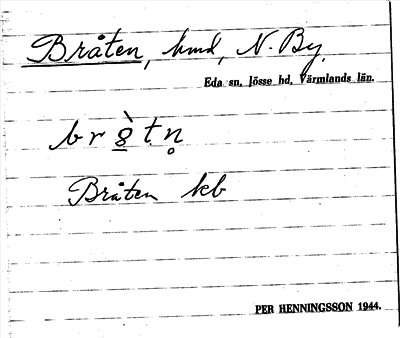 Bråten, hmd, N. By.
Eda sn, Jösse hd, Värmlands län.
Bråten kb
PER HENNINGSSON 1944.